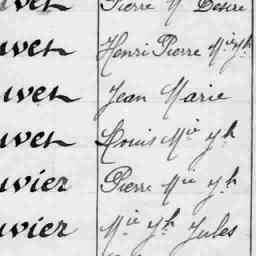 uvet Pierre M Désiré
uvet Henri Pierre Mie Jh
uvet Jean Marie
uvet Louis Mie Jh
uvier Pierre Mie Jh
uvier Mie Jh Jules